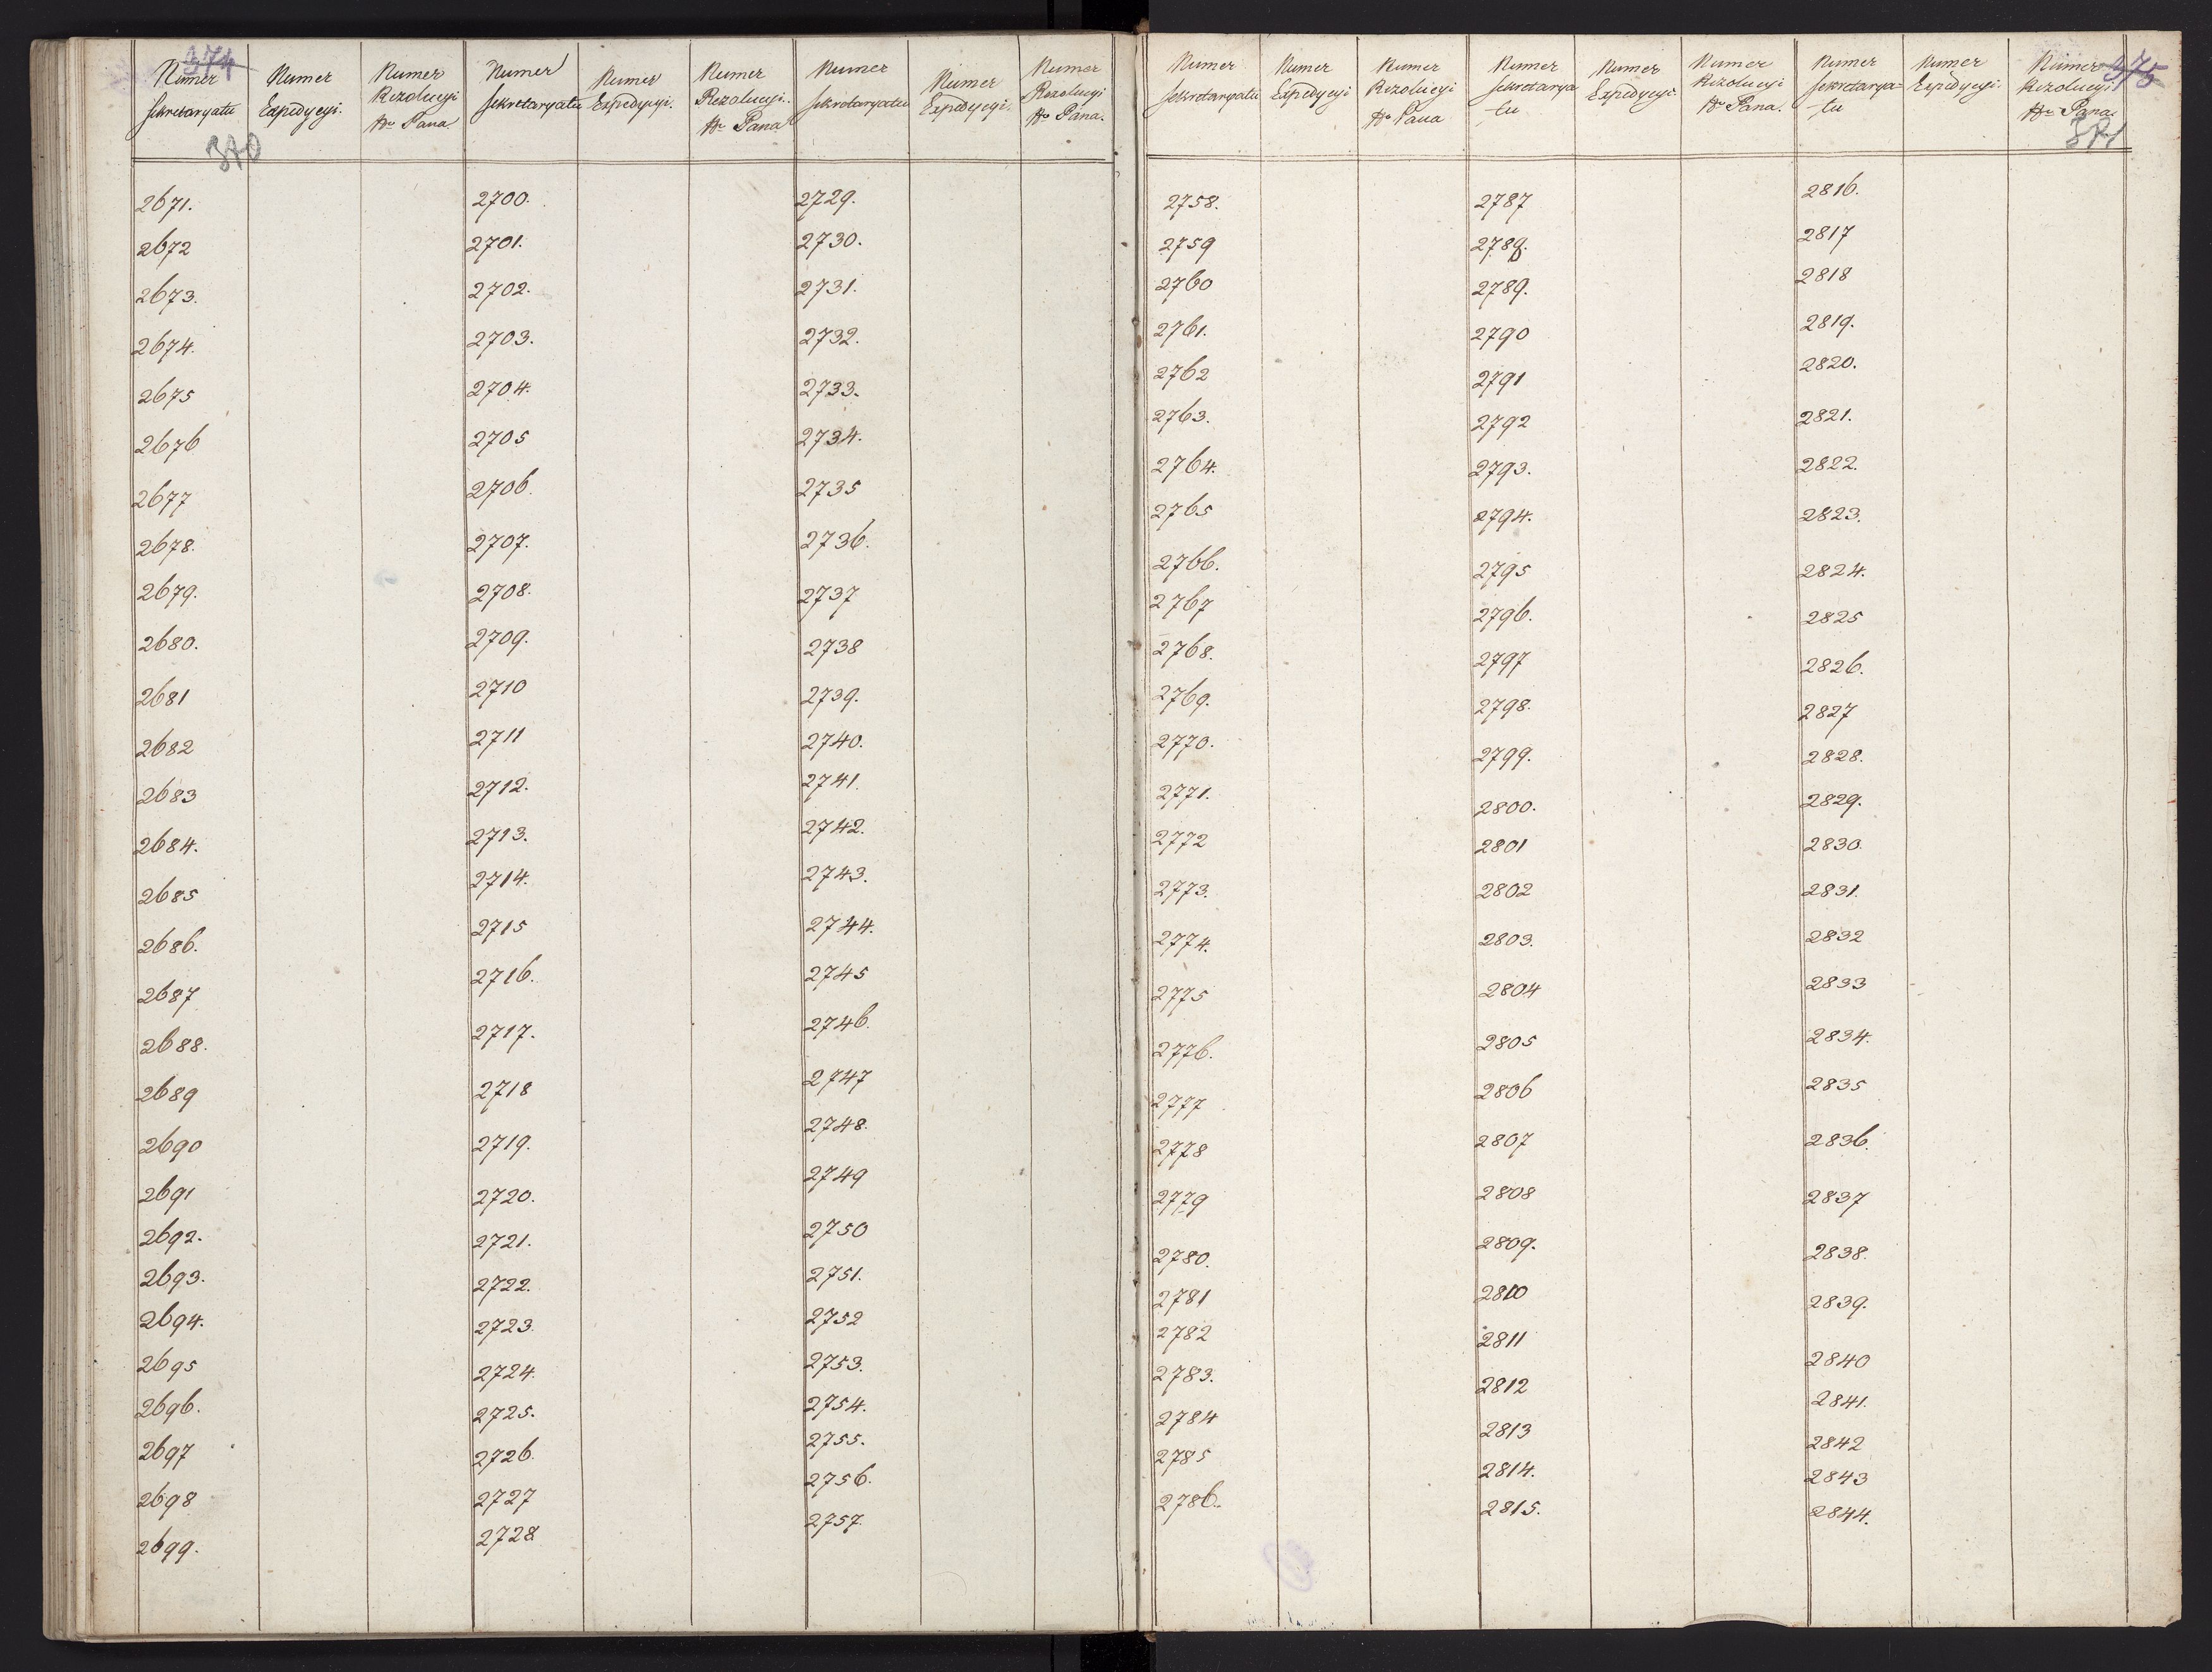 374
Numer Sekretaryatu
Numer Expedycyi.
Numer Rezolucyi Hr Pana
Numer Sekretaryatu
Numer Expedycyi.
Numer Rezolucyi. Hr Pana
Numer Sekretaryatu
Numer Expedycyi.
Numer Rezolucyi Hr Pana.
370
2671.
2672
2673.
2674.
2675
2676
2677
2678.
2679.
2680.
2681
2682
2683
2684.
2685
2686.
2687
2688.
2689
2690
2691
2692.
2693.
2694.
2695
2696.
2697
2698
2699.
2700.
2701.
2702.
2703.
2704.
2705
2706.
2707.
2708.
2709.
2710
2711
2712.
2713.
2714.
2715
2716.
2717.
2718
2719.
2720.
2721.
2722.
2723.
2724.
2725.
2726.
2727
2728
2729.
2730.
2731.
2732.
2733.
2734.
2735
2736.
2737
2738
2739.
2740.
2741.
2742.
2743.
2744.
2745
2746.
2747
2748.
2749
2750
2751.
2752
2753.
2754.
2755.
2756.
2757.
375
Numer Sekretaryatu
Numer Expedycyi
Numer Rezolucyi Hr Pana
Numer Sekretarya-
tu
Numer Expedycyi.
Numer Rezolucyi Hr Pana.
Numer Sekretarya-
tu
Numer Expedycyi.
Numer Rezolucyi Hr Pana.
371
2758.
2759
2760
2761.
2762
2763.
2764.
2765
2766.
2767
2768.
2769.
2770.
2771.
2772
2773.
2774.
2775
2776.
2777
2778
2779
2780.
2781
2782
2783.
2784
2785
2786.
2787
2788.
2789.
2790
2791
2792
2793.
2794.
2795
2796.
2797
2798.
2799.
2800.
2801
2802
2803.
2804
2805
2806
2807
2808
2809.
2810
2811
2812
2813
2814.
2815.
2816.
2817
2818
2819.
2820.
2821.
2822.
2823.
2824.
2825
2826.
2827
2828.
2829.
2830.
2831.
2832
2833
2834.
2835
2836.
2837
2838.
2839.
2840
2841.
2842
2843
2844.